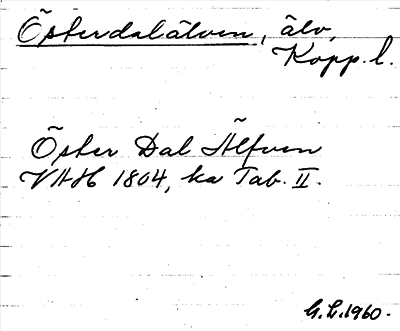 Österdalälven, älv,
Kopp. l.
Öster Dal Älfven
VAH 1804, ka Tab. II.
G.L.1960.